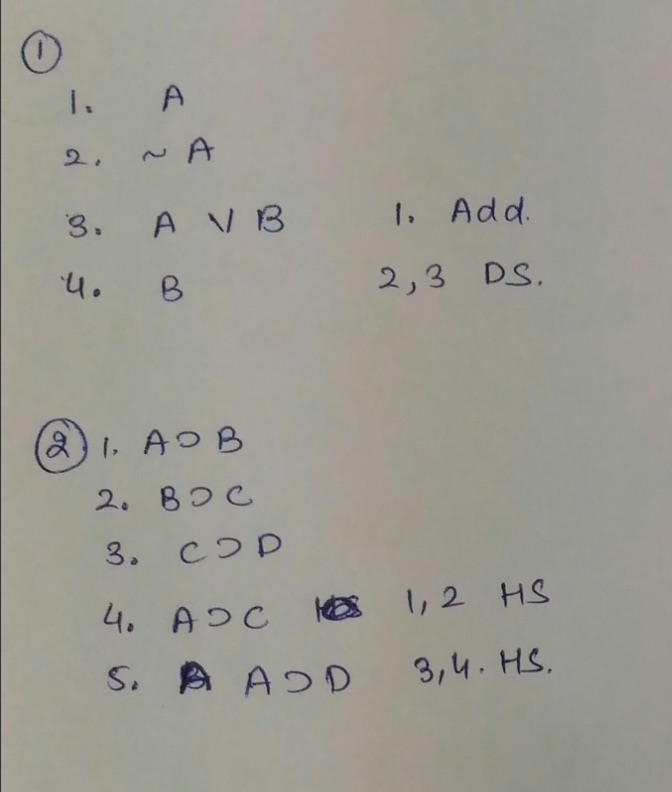 1
1. A
2. ~ A
3. A V B 1. Add.
4. B 2,3 DS.
2 1. A⊃B
2. B⊃C
3. C⊃D
4. A⊃C 1,2 HS
5. A⊃D 3,4. HS.